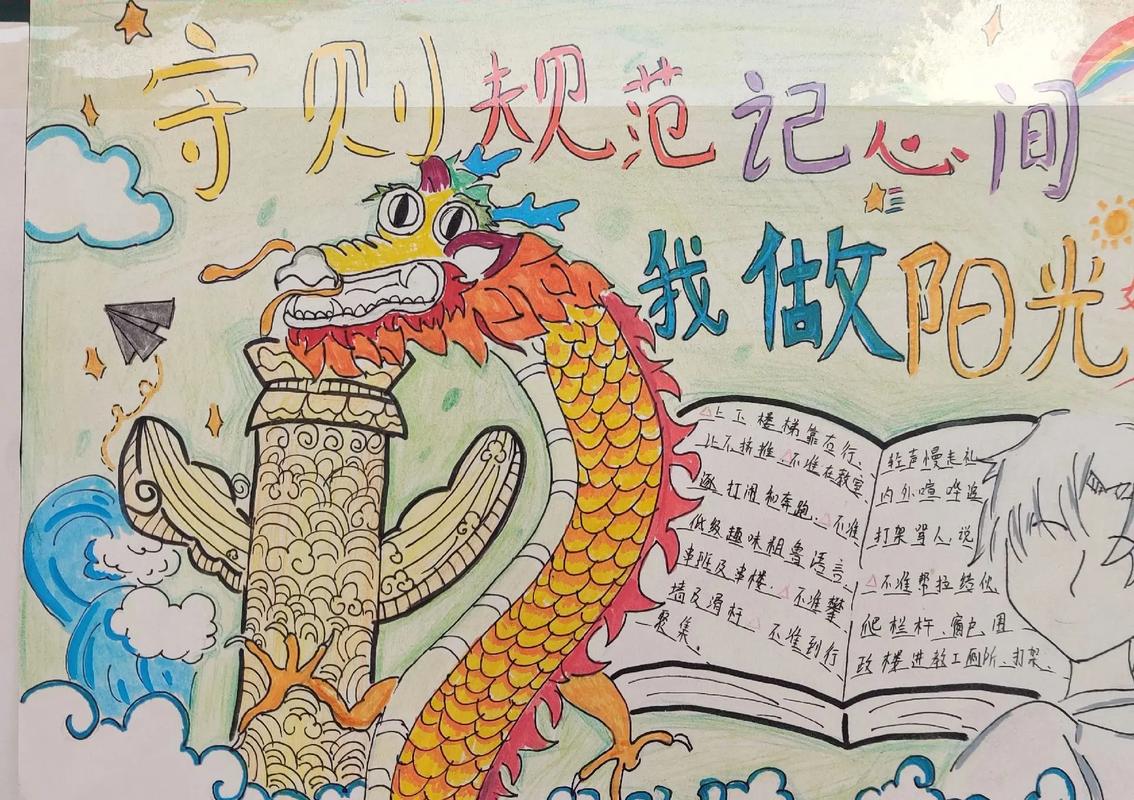 守则规范记心间
我做阳光
△上下楼梯靠右行、
让不挤推、△不准在教室
逐、打闹和奔跑、△不准
低级趣味粗鲁语言、
车班及车楼、△不准攀
墙及滑杆、△不准到行
聚集、
轻声慢走礼
内外喧哗追
打架骂人、说
△不准帮拉结伙
爬栏杆、窗包围
政楼进教工厕所、打架、